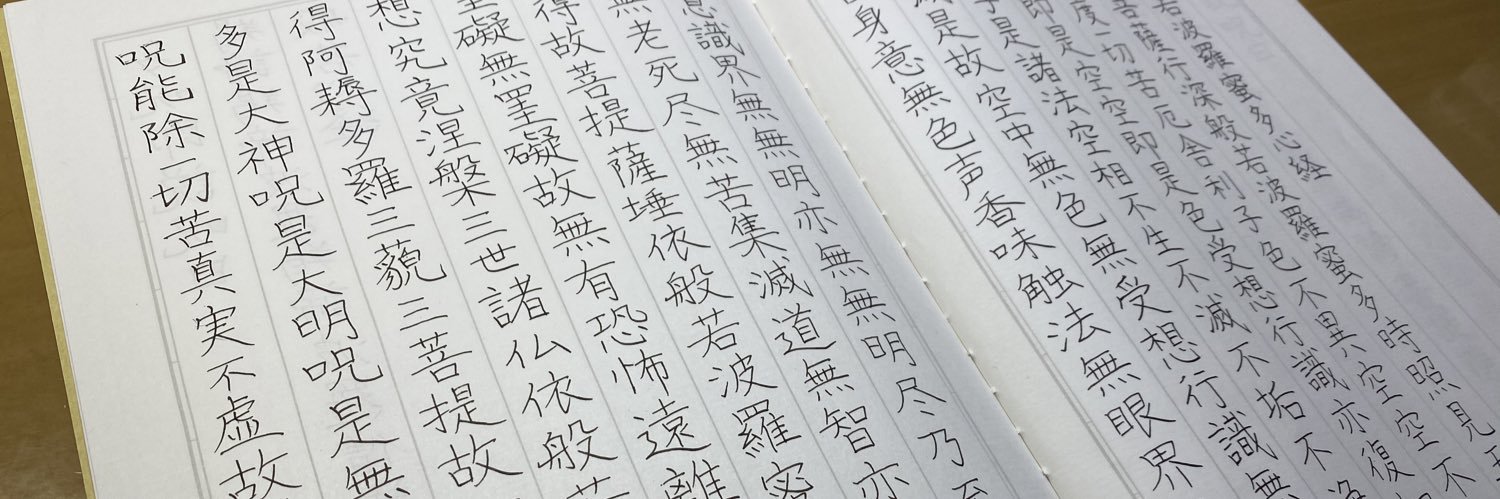 若波羅蜜多心経
菩薩行深般若波羅蜜多時照見
度一切苦厄舎利子色不異空空不
即是空空即是色受想行識亦復
子是諸法空相不生不滅不垢不
減是故空中無色無受想行識無
身意無色声香味触法無眼界
意識界無無明亦無無明尽乃至
無老死尽無苦集滅道無智亦
得故菩提薩埵依般若波羅蜜
罣礙無罣礙故無有恐怖遠離
想究竟涅槃三世諸仏依般若
得阿耨多羅三藐三菩提故
多是大神呪是大明呪是無
呪能除一切苦真実不虚故